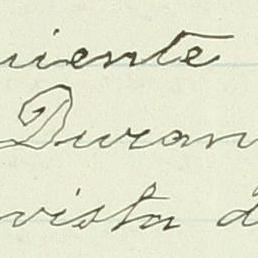 uiente
Duran
vista d